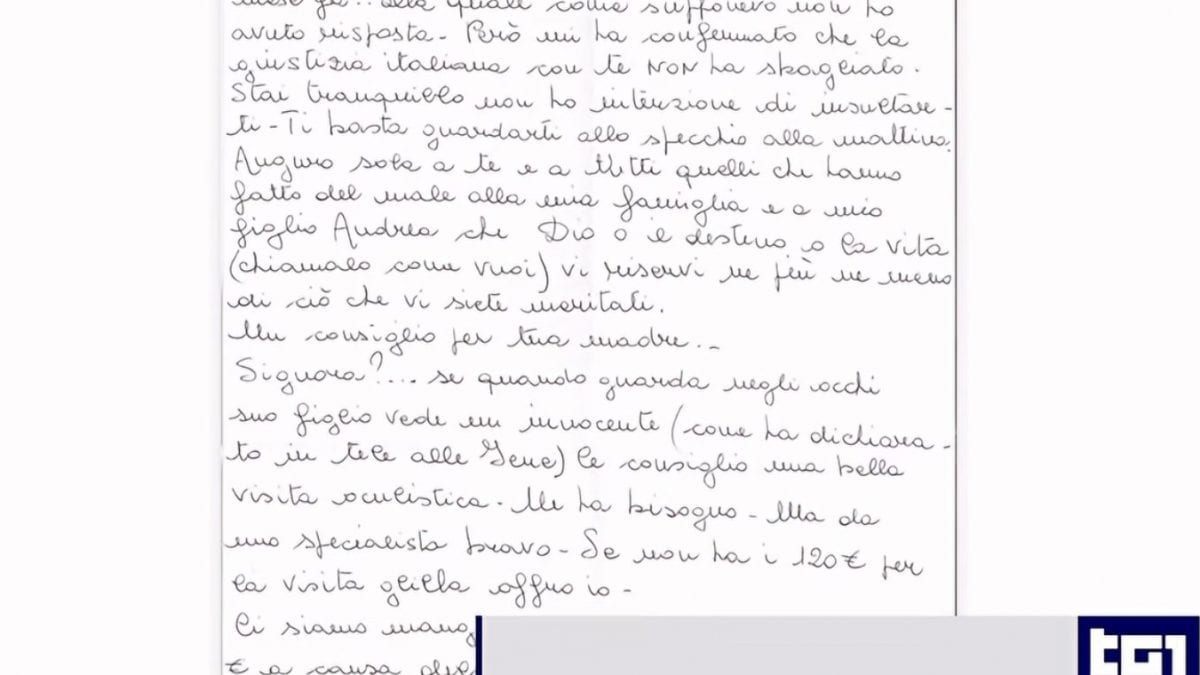 mese fa... alla quale come supponevo non ho
avuto risposta - Però mi ha confermato che la
giustizia italiana con te NON ha sbagliato.
Stai tranquillo non ho intenzione di insultar-
ti - Ti basta guardarti allo specchio alla mattina.
Auguro solo a te e a tutti quelli che hanno
fatto del male alla mia famiglia e a mio
figlio Andrea che Dio o il destino o la vita
(chiamalo come vuoi) vi riservi ne più ne meno
di ciò che vi siete meritati.
Un consiglio per tua madre..
Signora?.... se quando guarda negli occhi
suo figlio vede un innocente (come ha dichiara-
to in tele alle Iene) le consiglio una bella
visita oculistica - Ne ha bisogno - Ma da
uno specialista bravo - Se non ha i 120€ per
la visita gliela offro io -
Ci siamo
€ a causa
tg1